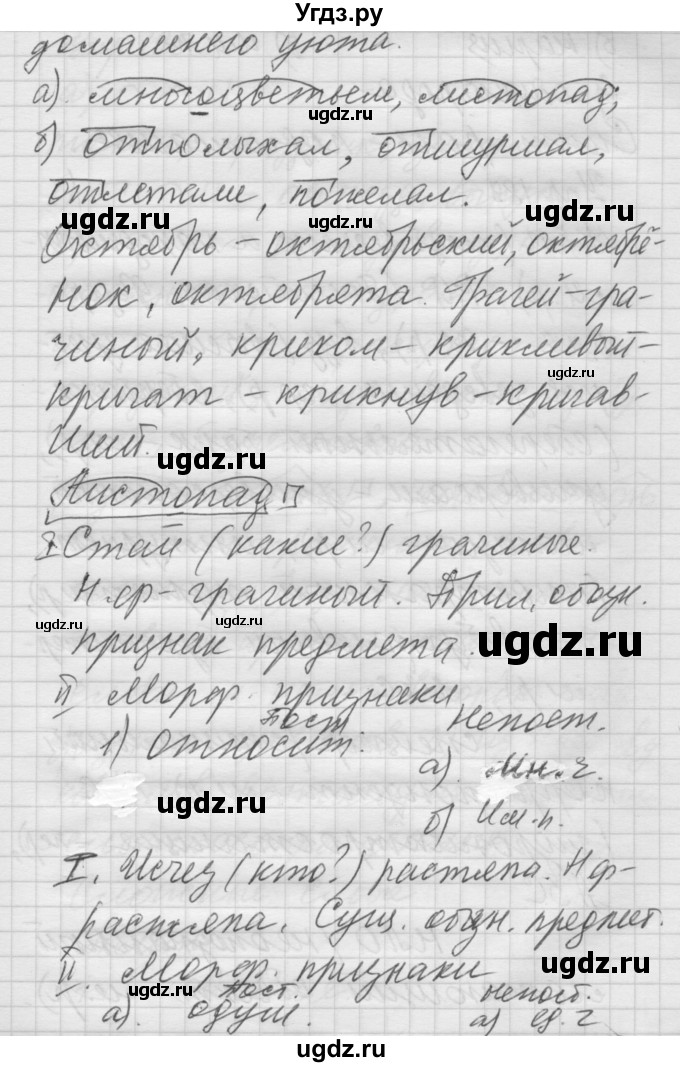 Угдз.ру
домашнего уюта.
а) многоцветьем, листопад;
б) отполыхал, отшуршал,
отлетали, пожелал.
ugdz.ru ugdz.ru
Октябрь – октябрьский, октябрё-
нок, октябрята. Грачей – гра-
чиный, криком – крикливый –
ugdz.ru
кричат – крикнув – кричав-
ший.
ugdz.ru
Листопад
I Стаи (какие?) грачиные.
Н.ф – грачиный. Прил, обозн.
ugdz.ru ugdz.ru
признак предмета.
ugdz.ru
II Морф. признаки
Пост Непост.
1) относит.
а) Мн.ч.
ugdz.ru
б) Им.п.
I. Исчез (кто?) растяпа. Н.ф-
растяпа. Сущ. обозн. предмет.
II. Морф. признаки
ugdz.ru
ugdz.ru
Пост. непост.
а) одуш. а) ед.ч
ugdz.ru